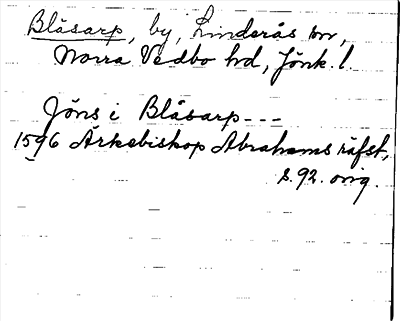 Blåsarp, by, Linderås sn,
Norra Vedbo hd, Jönk. l.
Jöns i Blåsarp ---
1596 Ärkebiskop Abrahams räfst,
s. 92. orig.